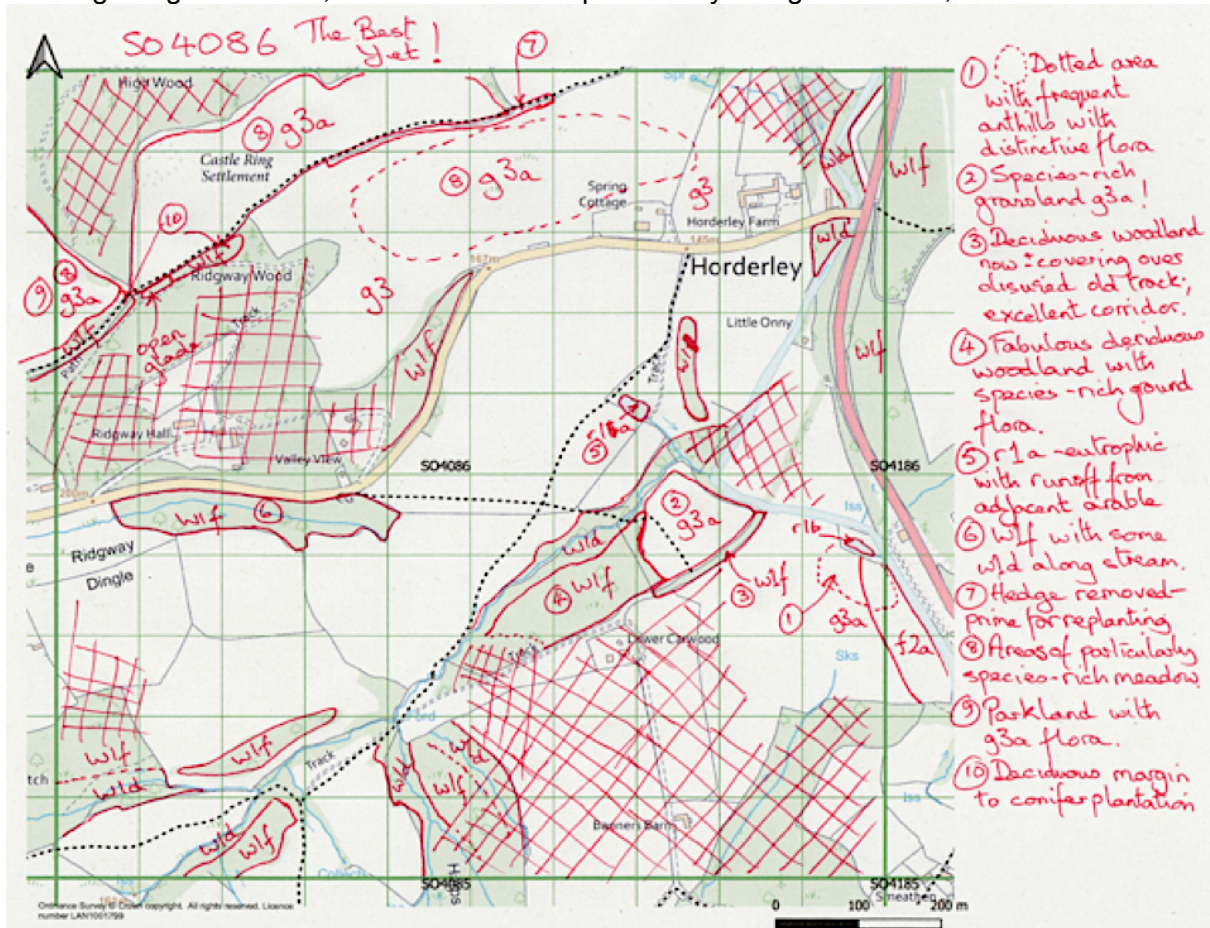 SO4086 The Best
Yet!
⑦
High Wood
⑧ g3a
Castle Ring
Settlement
⑧ g3a
g3
Spring
Cottage
Horderley Farm
w1d
w1f
145m
w1d
Horderley
⑩
w1f
Ridgway Wood
167m
g3
⑨ ⑧
g3a
w1f
Path
open
glade
Track
w1f
Little Onny
w1f
Track
w1f
Ridgway Hall
Valley View
⑤
SO4086
SO4186
200m
w1f ⑥
② g3a
r1b
Iss
Ridgway
Dingle
w1d
④ w1f
③ w1f
① g3a
Lower Carwood
Track
f2a
Sks
Ford
w1f
w1d
w1f
Track
w1d
w1d
w1f
w1d
w1f
Banners Barn
Iss
Iss
Collects
SO4085
SO4185
Smeathen
Ordnance Survey © Crown copyright. All rights reserved. Licence
number LAN1001799
0 100 200 m
① Dotted area
with frequent
anthills with
distinctive flora
② Species-rich
grassland g3a!
③ Deciduous woodland
now ± covering over
disused old track;
excellent corridor.
④ Fabulous deciduous
woodland with
species-rich gound
flora.
⑤ r1a - eutrophic
with runoff from
adjacent arable
⑥ W1f with some
w1d along stream.
⑦ Hedge removed-
prime for replanting
⑧ Areas of particularly
species-rich meadow
⑨ Parkland with
g3a flora.
⑩ Deciduous margin
to conifer plantation